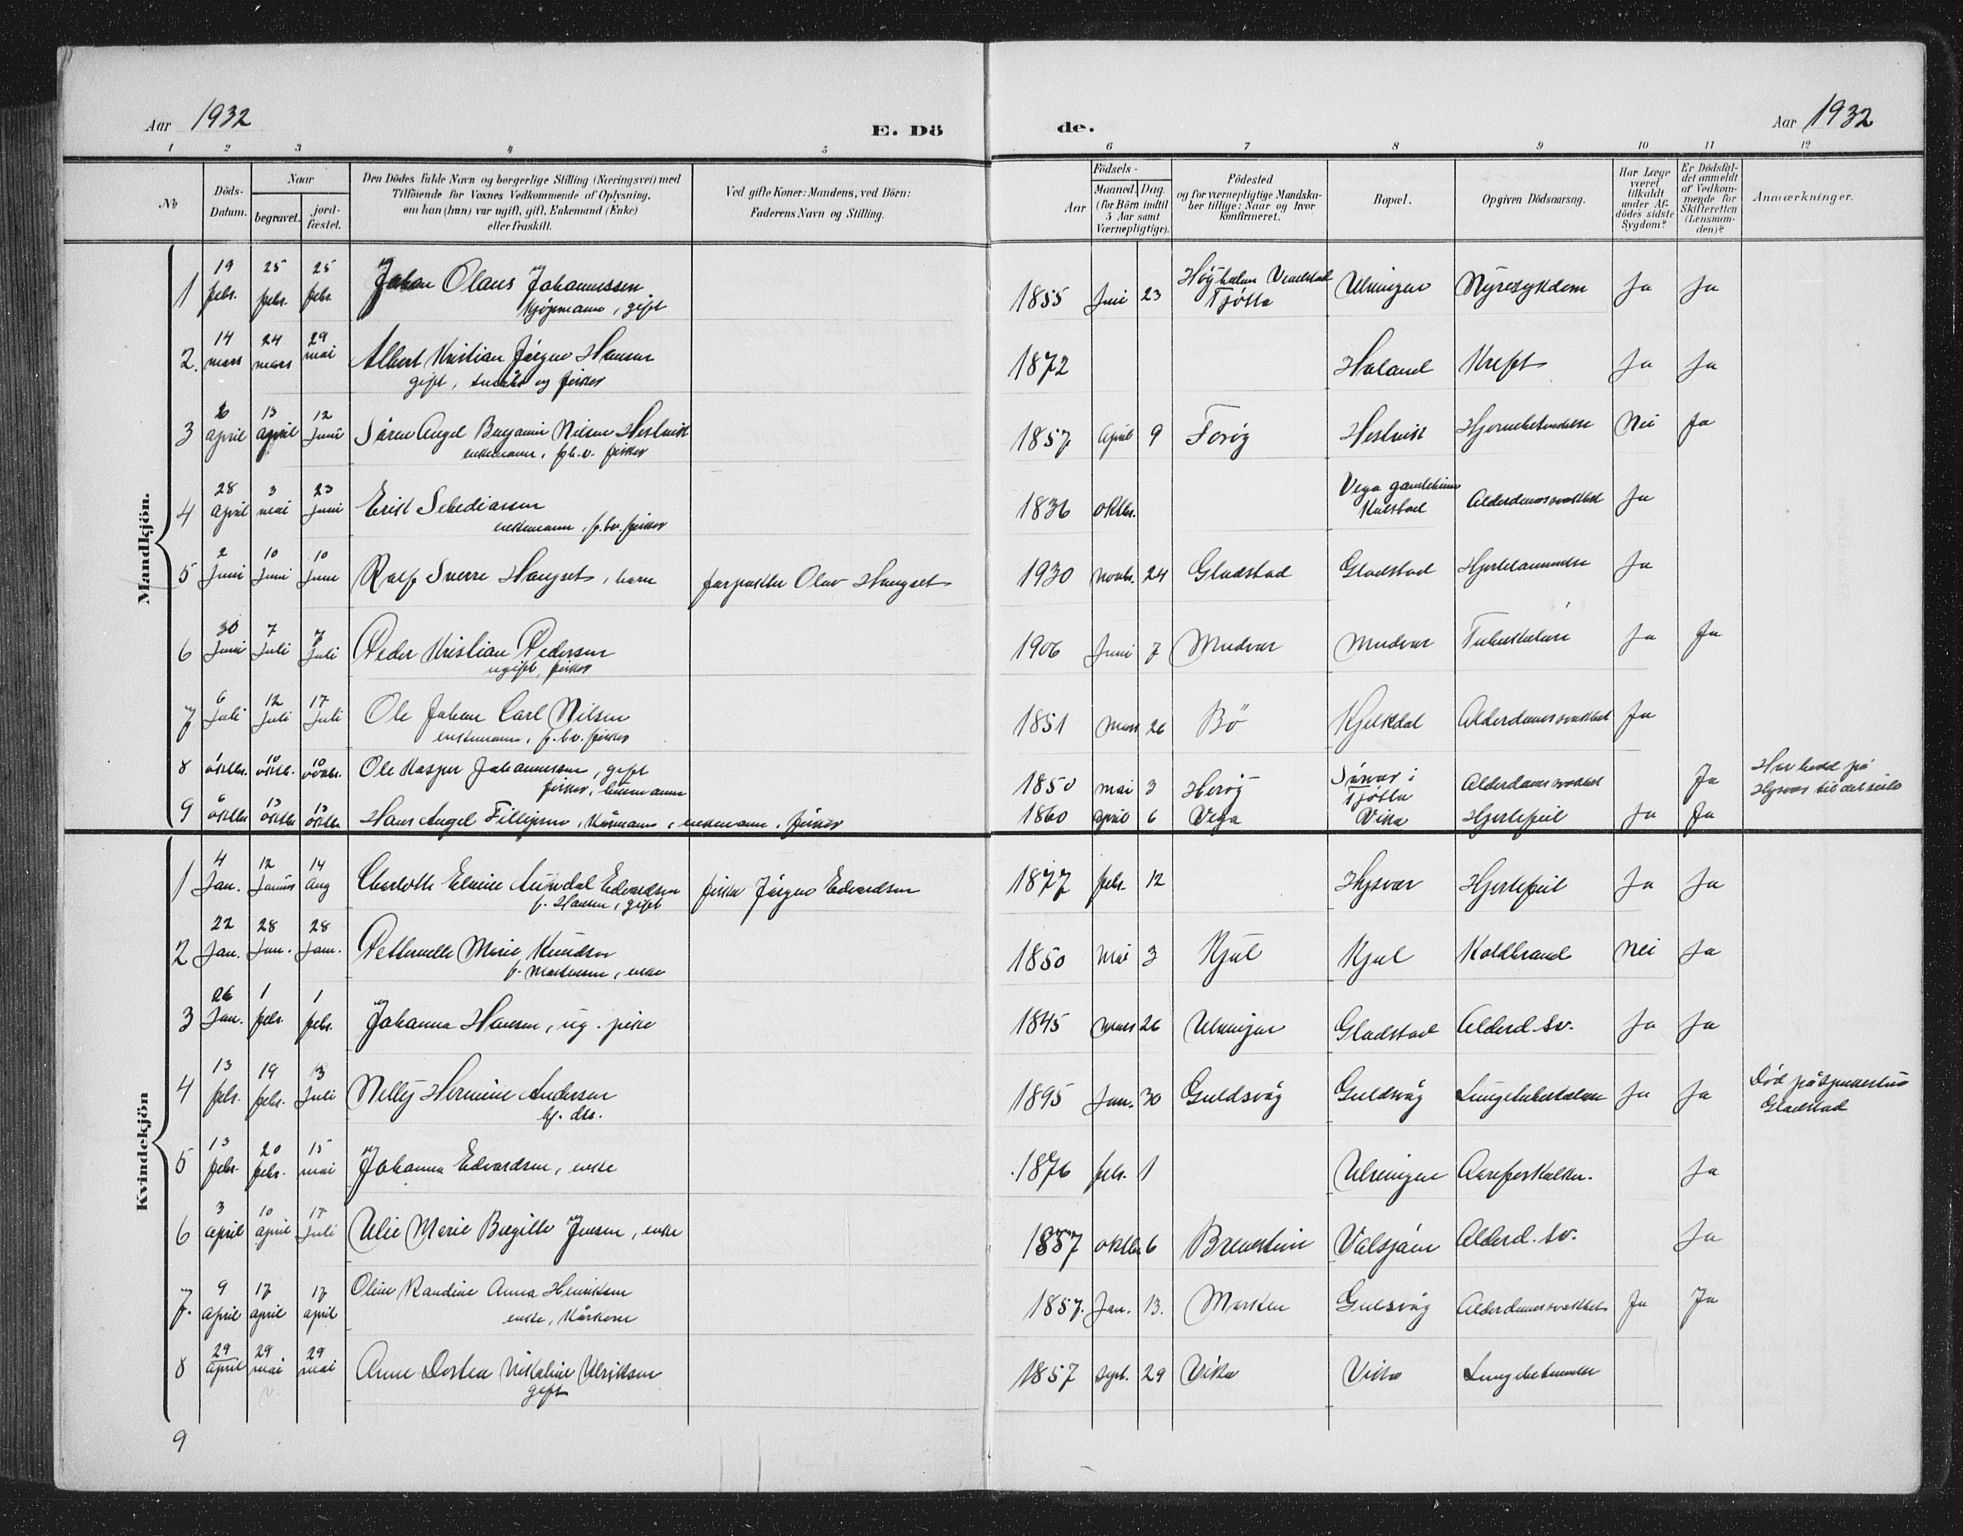 Aar 1932
E. Dö
de.
Aar 1932
1 2 3 4 5 6 7 8 9 10 11 12
№
Döds-
Datum.
Naar
begravet.
jord-
fæstet.
Den Dödes fulde Navn og borgerlige Stilling (Næringsvei) med
Tilföiende for Voxnes Vedkommende af Oplysning,
om han (hun) var ugift, gift, Enkemand (Enke)
eller fraskilt.
Ved gifte Koner: Mandens, ved Börn:
Faderens Navn og Stilling.
Födsels-
Aar
Maaned. Dag.
(for Börn indtil
5 Aar samt
Værnepligtige).
Födested
og for værnepligtige Mandska-
ber tillige: Naar og hvor
konfirmeret.
Bopæl.
Opgiven Dödsaarsag.
Har Læge
været
tilkaldt
under Af-
dödes sidste
Sygdom?
Er Dödsfal-
det anmeldt
af Vedkom-
mende for
Skifteretten
(Lensman-
den)?
Anmærkninger.
Mandkjön.
1 19 febr. 25 febr. 25 febr. Johan Olaus Johannessen 1855 Juni 23 Ulvingen Nyresykdom Ja Ja
Kjøpmann, gift Tjøtta
2. 14 mars 24 mars 29 mai Albert Kristian Jørgen Hansen 1872 Haland Kreft Ja Ja
gift, og fisker
3 6 april 13 april 12 Juni Søren Angel Benjamin Nilsen Hestvik 1857 April 9 Forøy Hestvik Hjernebetendelse Nei Ja
enkemann, fisker
4 28 april 3 mai 23 Juni Erik Sebediassen 1836 oktbr. Vega gamlehjem Alderdomssvakhet Ja
enkemann, f.bv. fisker
5 2 Juni 10 Juni 10 Juni Ralf Sverre Haugset, barn Olav Haugset 1930 novbr. 24 Gladstad Gladstad Ja
6 30 Juni 7 Juli 7 Juli Peder Kristian Pedersen 1906 Juni 7 Mudvær Mudvær Tuberkulose Ja Ja
ugift, fisker
7 6 Juli 12 Juli 17 Juli Ole Johan Carl Nilsen 1851 mars 26 Bö Kjelkdal Alderdomssvakhet Ja
enkemann, f.bv. fisker
8 oktbr. 10 oktbr. 10 Ole Kasper Johannessen, gift 1850 mai 3 Herøy i Tjøtta Alderdomssvakhet Ja Har bodd på
fisker, Hysvær til det siste
9 6 oktbr 13 oktbr 13 oktbr Hans Angel Fillipsen, Kårmann, enkemann, fisker 1860 april 6 Vega Vika Hjertefeil Ja Ja
Kvindekjön
1 4 Jan. 12 Januar 14 Aug Charlotte Elvine Edvardsen fisker Jørgen Edvardsen 1877 febr. 12 Hysvær Hjertefeil Ja Ja
f. Hansen, gift
2 22 Jan. 28 Jan. 28 Jan. Petternelle Marie Knudsen 1850 Mai 3 Kjul Kjul Koldbrand Nei Ja
f. enke
3 26 Jan. 1 febr. 1 febr. Johanna Hansen, ug. pike 1845 mars 26 Ulvingen Gladstad Alderd. sv. Ja Ja
4 13 febr. 19 febr. 3 Juli Nelly Hermine Andersen 1895 Jan. 30 Guldsvåg Guldsvåg Lungetuberkulose Ja Ja Død på sykestua
Gladstad
5 13 febr. 20 febr. 15 mai Johanna Edvardsen, enke 1876 febr. 1 Ulvingen Aareforkalkn. Ja
6 3 april 10 april 17 Juli Ulie Marie Birgitte Jensen, enke 1857 oktbr. 6 Valsjøen Alderd. sv. Ja
7. 9 april 17 april 17 april Oline Randine Anna Henriksen 1857. Jan. 13. Marken Gulsvåg Alderdomssvakhet Ja Ja
enke, Kårkone
8 29 april 29 mai 29 mai Anne Dortea Nikoline Ulriksen 1857 Sept. 29 Vika Vika Lungebetennelse
gift
9